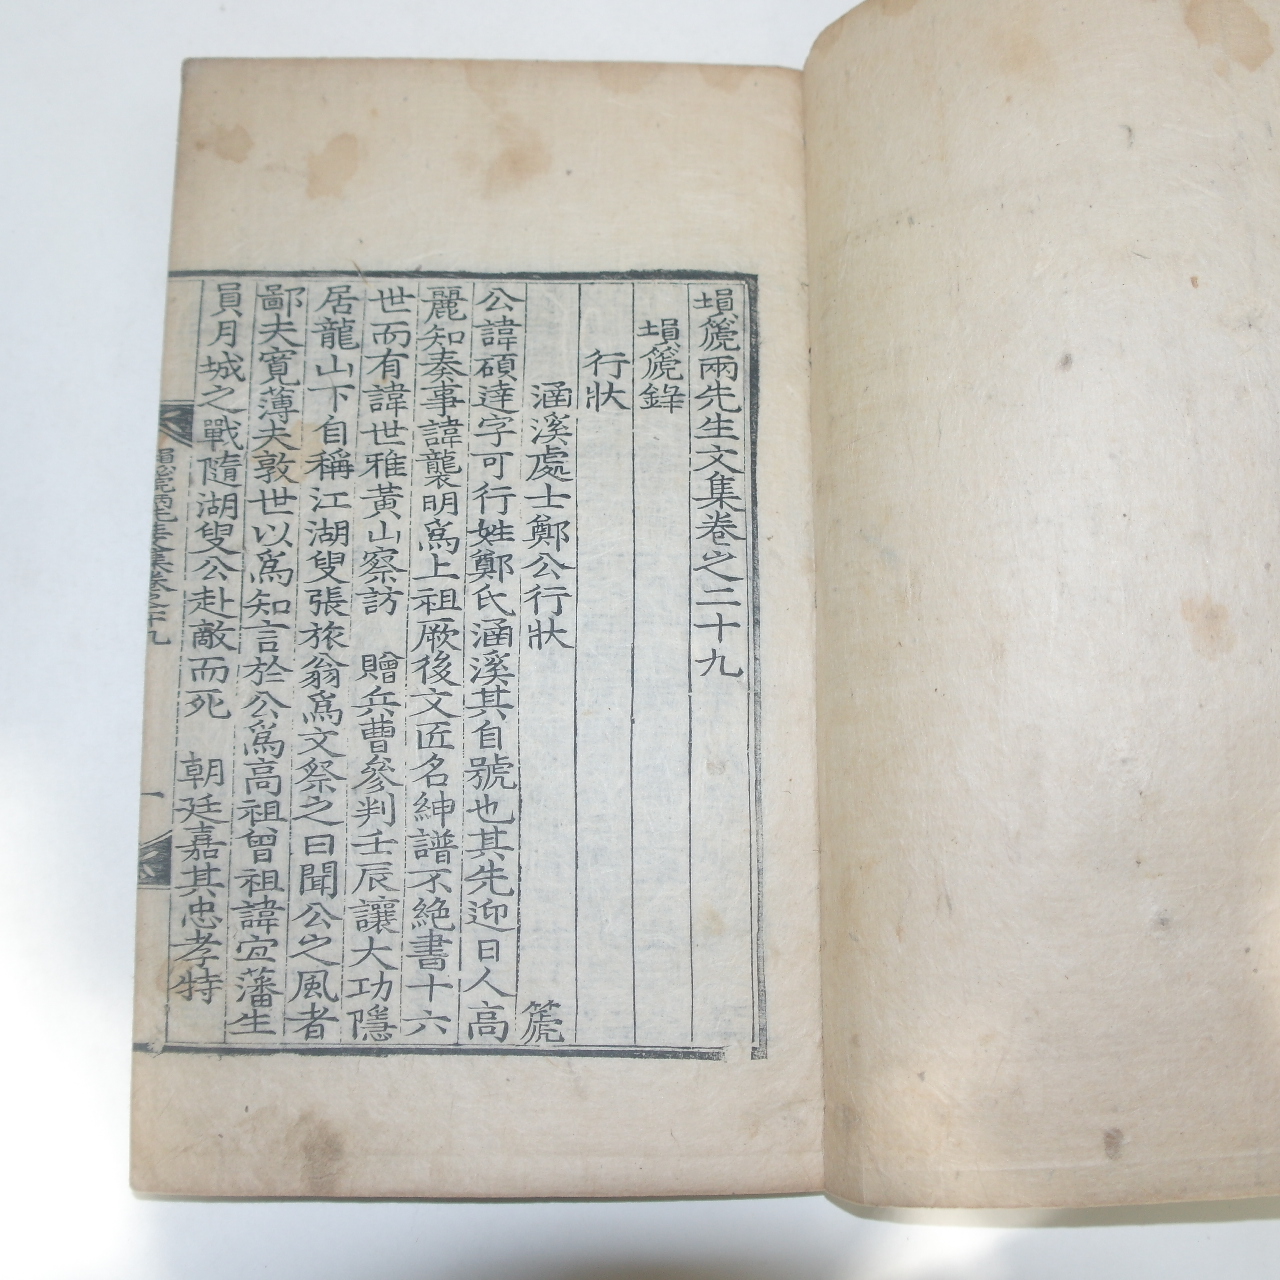 塤篪兩先生文集卷之二十九
塤篪錄
行狀
涵溪處士鄭公行狀 篪
公諱碩達字可行姓鄭氏涵溪其自號也其先迎日人高
麗知奏事諱襲明爲上祖厥後文匠名紳譜不絶書十六
世而有諱世雅黃山察訪 贈兵曹參判壬辰讓大功隱
居龍山下自稱江湖叟張旅翁爲文祭之曰聞公之風者
鄙夫寬薄夫敦世以爲知言於公爲高祖曾祖諱宜藩生
員月城之戰隨湖叟公赴敵而死 朝廷嘉其忠孝特
塤篪兩先生文集卷之二十九 一